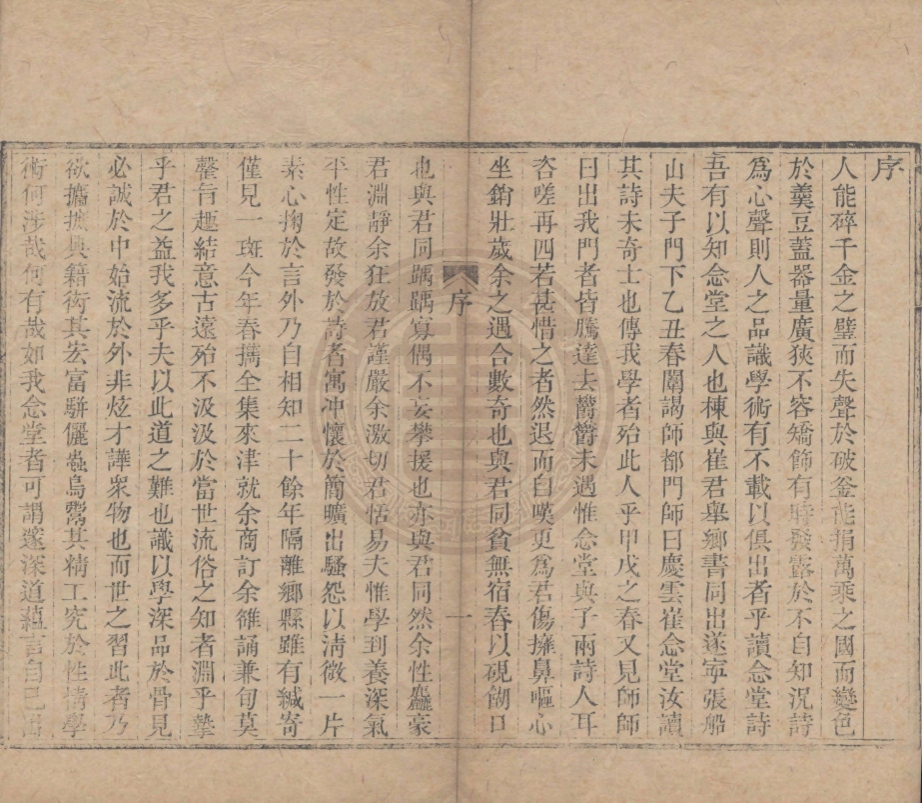 序
人能碎千金之璧而失聲於破釜能捐萬乘之國而變色
於羹豆蓋器量廣狹不容矯飾有時發露於不自知況詩
為心聲則人之品識學術有不載以俱出者乎讀念堂詩
吾有以知念堂之人也棟與崔君舉鄉書同出遂寧張船
山夫子門下乙丑春闈謁師都門師曰慶雲崔念堂汝讀
其詩未奇士也傳我學者殆此人乎甲戌之春又見師師
曰出我門者皆騰達去欝欝未遇惟念堂與子兩詩人耳
咨嗟再四若甚惜之者然退而自嘆更為君傷擁鼻嘔心
坐銷壯歲余之遇合數奇也與君同貧無宿舂以硯餬口
序
一
也與君同踽踽寡偶不妄攀援也亦與君同然余性麤豪
君淵靜余狂放君謹嚴余激切君恬易夫惟學到養深氣
平性定故發於詩者寓冲懷於簡曠出騷怨以清微一片
素心掬於言外乃自相知二十餘年隔離鄉縣雖有緘寄
僅見一斑今年春攜全集來津就余商訂余雒誦兼旬莫
罄旨趣結意古遠殆不汲汲於當世流俗之知者淵乎摯
乎君之益我多乎夫以此道之難也識以學深品於骨見
必誠於中始流於外非炫才譁衆物也而世之習此者乃
欲攟摭典籍衒其宏富駢儷蟲鳥鬻其精工究於性情學
術何涉哉何有哉如我念堂者可謂邃深道蘊言自己出